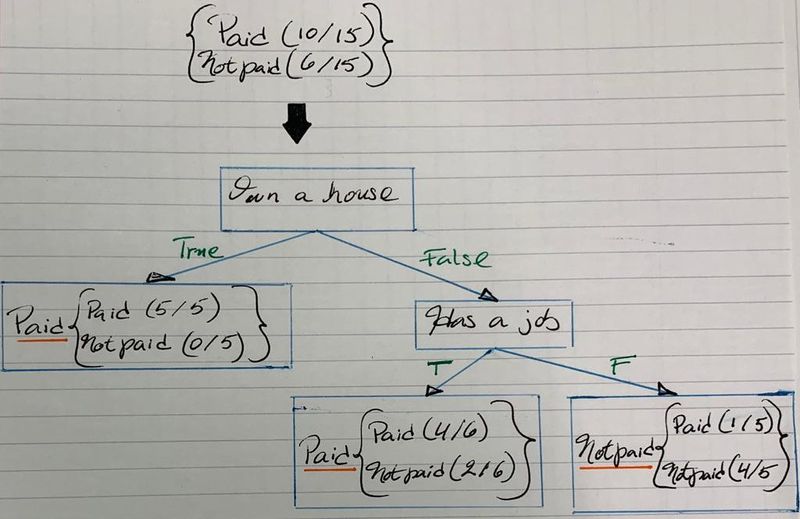 Paid (10/15)
Not paid (6/15)
Own a house
True
False
Paid
Paid (5/5)
Not paid (0/5)
Has a job
T
F
Paid
Paid (4/6)
Not paid (2/6)
Not paid
Paid (1/5)
Not paid (4/5